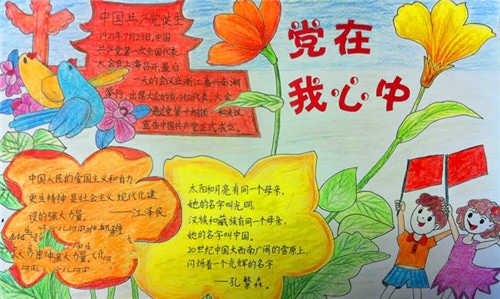 中国共产党诞生
1921年7月23日,中国
共产党第一次全国代表
大会在上海召开,最后
一天的会议在浙江嘉兴南湖
举行,出席大会的有13位代表,大会
通过党第十
宣告中国共产党正式成立。
党在
我心中
中国人民的爱国主义和自力
更生精神是社会主义现代化建
设的强大力量。
——江泽民
太阳和月亮有同一个母亲,
她的名字叫光明,
汉族和藏族有同一个母亲,
她的名字叫中国。
20世纪中国大西南广阔的雪原上,
闪烁着一个光辉的名字
——孔繁森。